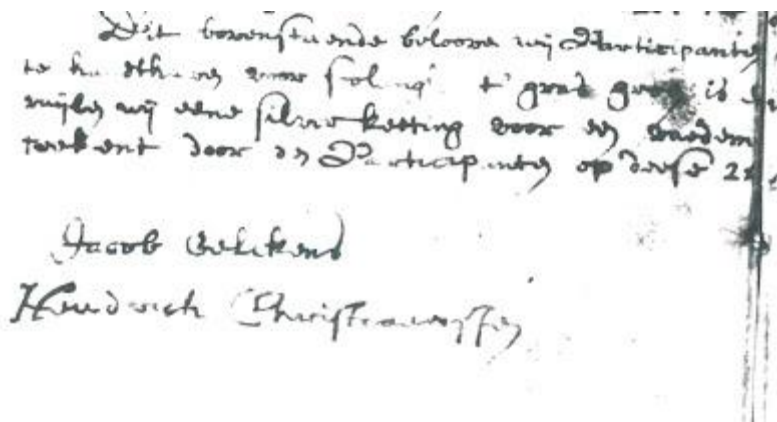 Dit bovenstaende beloove wij Participante
te voor solang t' gras groen is
wijlen wij eene silver ketting voor een vaedem
teekent door de Participanten op deese 21
Jacob Eelckens
Hendrick Christiaenssen